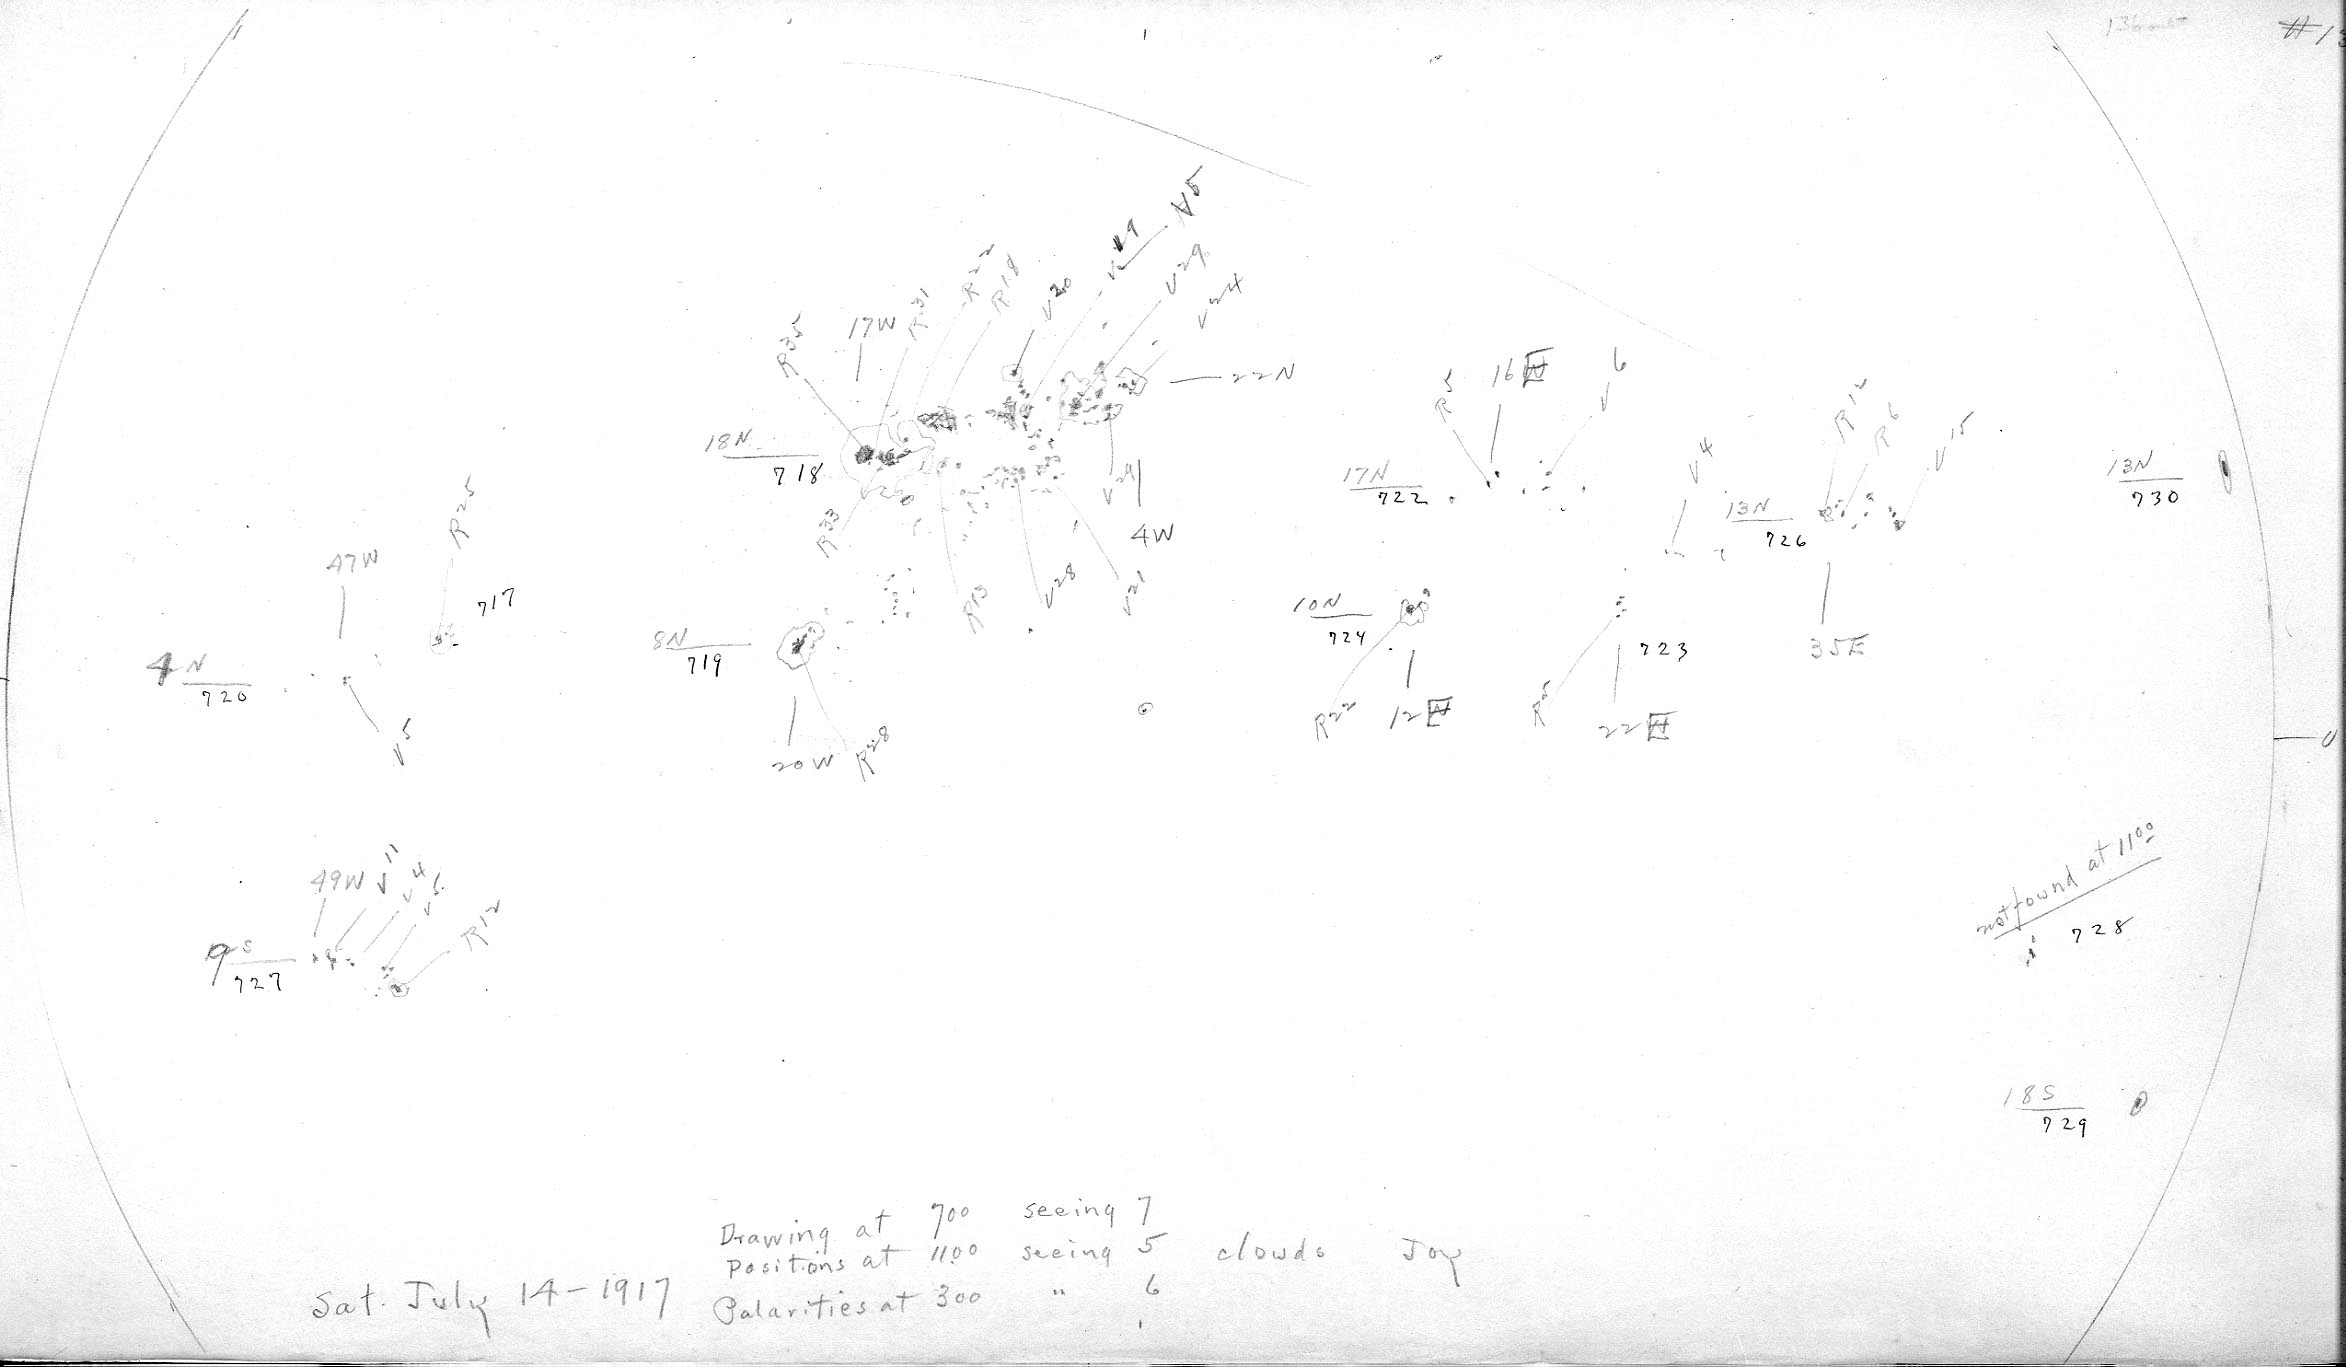 V19
N5
V29
V24
R22
R18
V20
R31
17W
R35
22N
16E
R5
V6
18N
718
17N
722
R12
R6
V15
V4
13N
726
13N
730
R33
V29
4W
47W
R25
717
R13
V28
V21
10N
724
35E
8N
719
723
4N
720
V5
20W
R28
R22
12E
R5
22E
0
49W
V11
V4
V5
R12
9S
727
not found at 11 00
728
18S
729
Drawing at 700 seeing 7
Positions at 1100 seeing 5 clouds Joy
Sat. July 14-1917
Polarities at 300 " 6